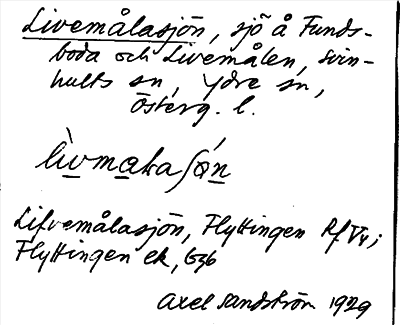 Livemålasjön, sjö å Funds-
boda och Livemålen, Svin-
hults sn, Ydre sn,
Österg. l.
lìvmaka ʃǿn
Lifvemålasjön, Flyttingen Rf V4;
Flyttingen ek, G36
Axel Sandström 1929